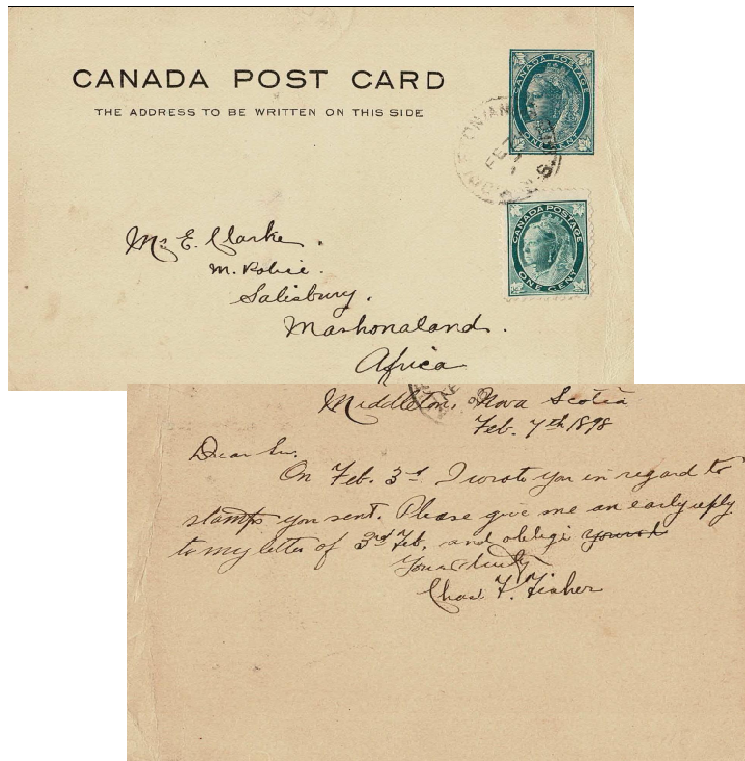 CANADA POST CARD
THE ADDRESS TO BE WRITTEN ON THIS SIDE
CANADA POSTAGE
ONE CENT
CANADA POSTAGE
ONE CENT
Mr E. Clarke.
M. Police.
Salisbury.
Mashonaland.
Africa
Middleton, Nova Scotia
Feb. 7th 1898
Dear Sir.
On Feb. 3rd I wrote you in regard to
stamps you sent. Please give me an early reply
to my letter of 3rd Feb. and oblige yours
Yours truly
Chas F. Fisher